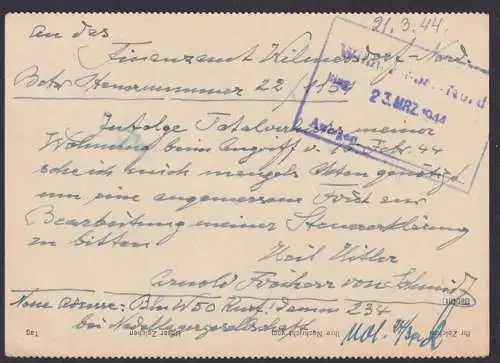 21.3.44.
An das
Finanzamt Wilmersdorf-Nord
Betr. Steuernummer 22/1151
Nord
Eing.
23. MRZ. 1944
Anlagen
Infolge Totalverlust meiner
Wohnung beim Angriff v. 15. Febr. 44
sehe ich mich mangels Akten genötigt
um eine angemessene Frist zur
Bearbeitung meiner Steuererklärung
zu bitten
Heil Hitler
Arnold Freiherr von
Neue Adresse: Bln W50 Kurf. damm 234
bei
Ihr Zeichen
Ihre Nachricht vom
Unser Zeichen
Tag